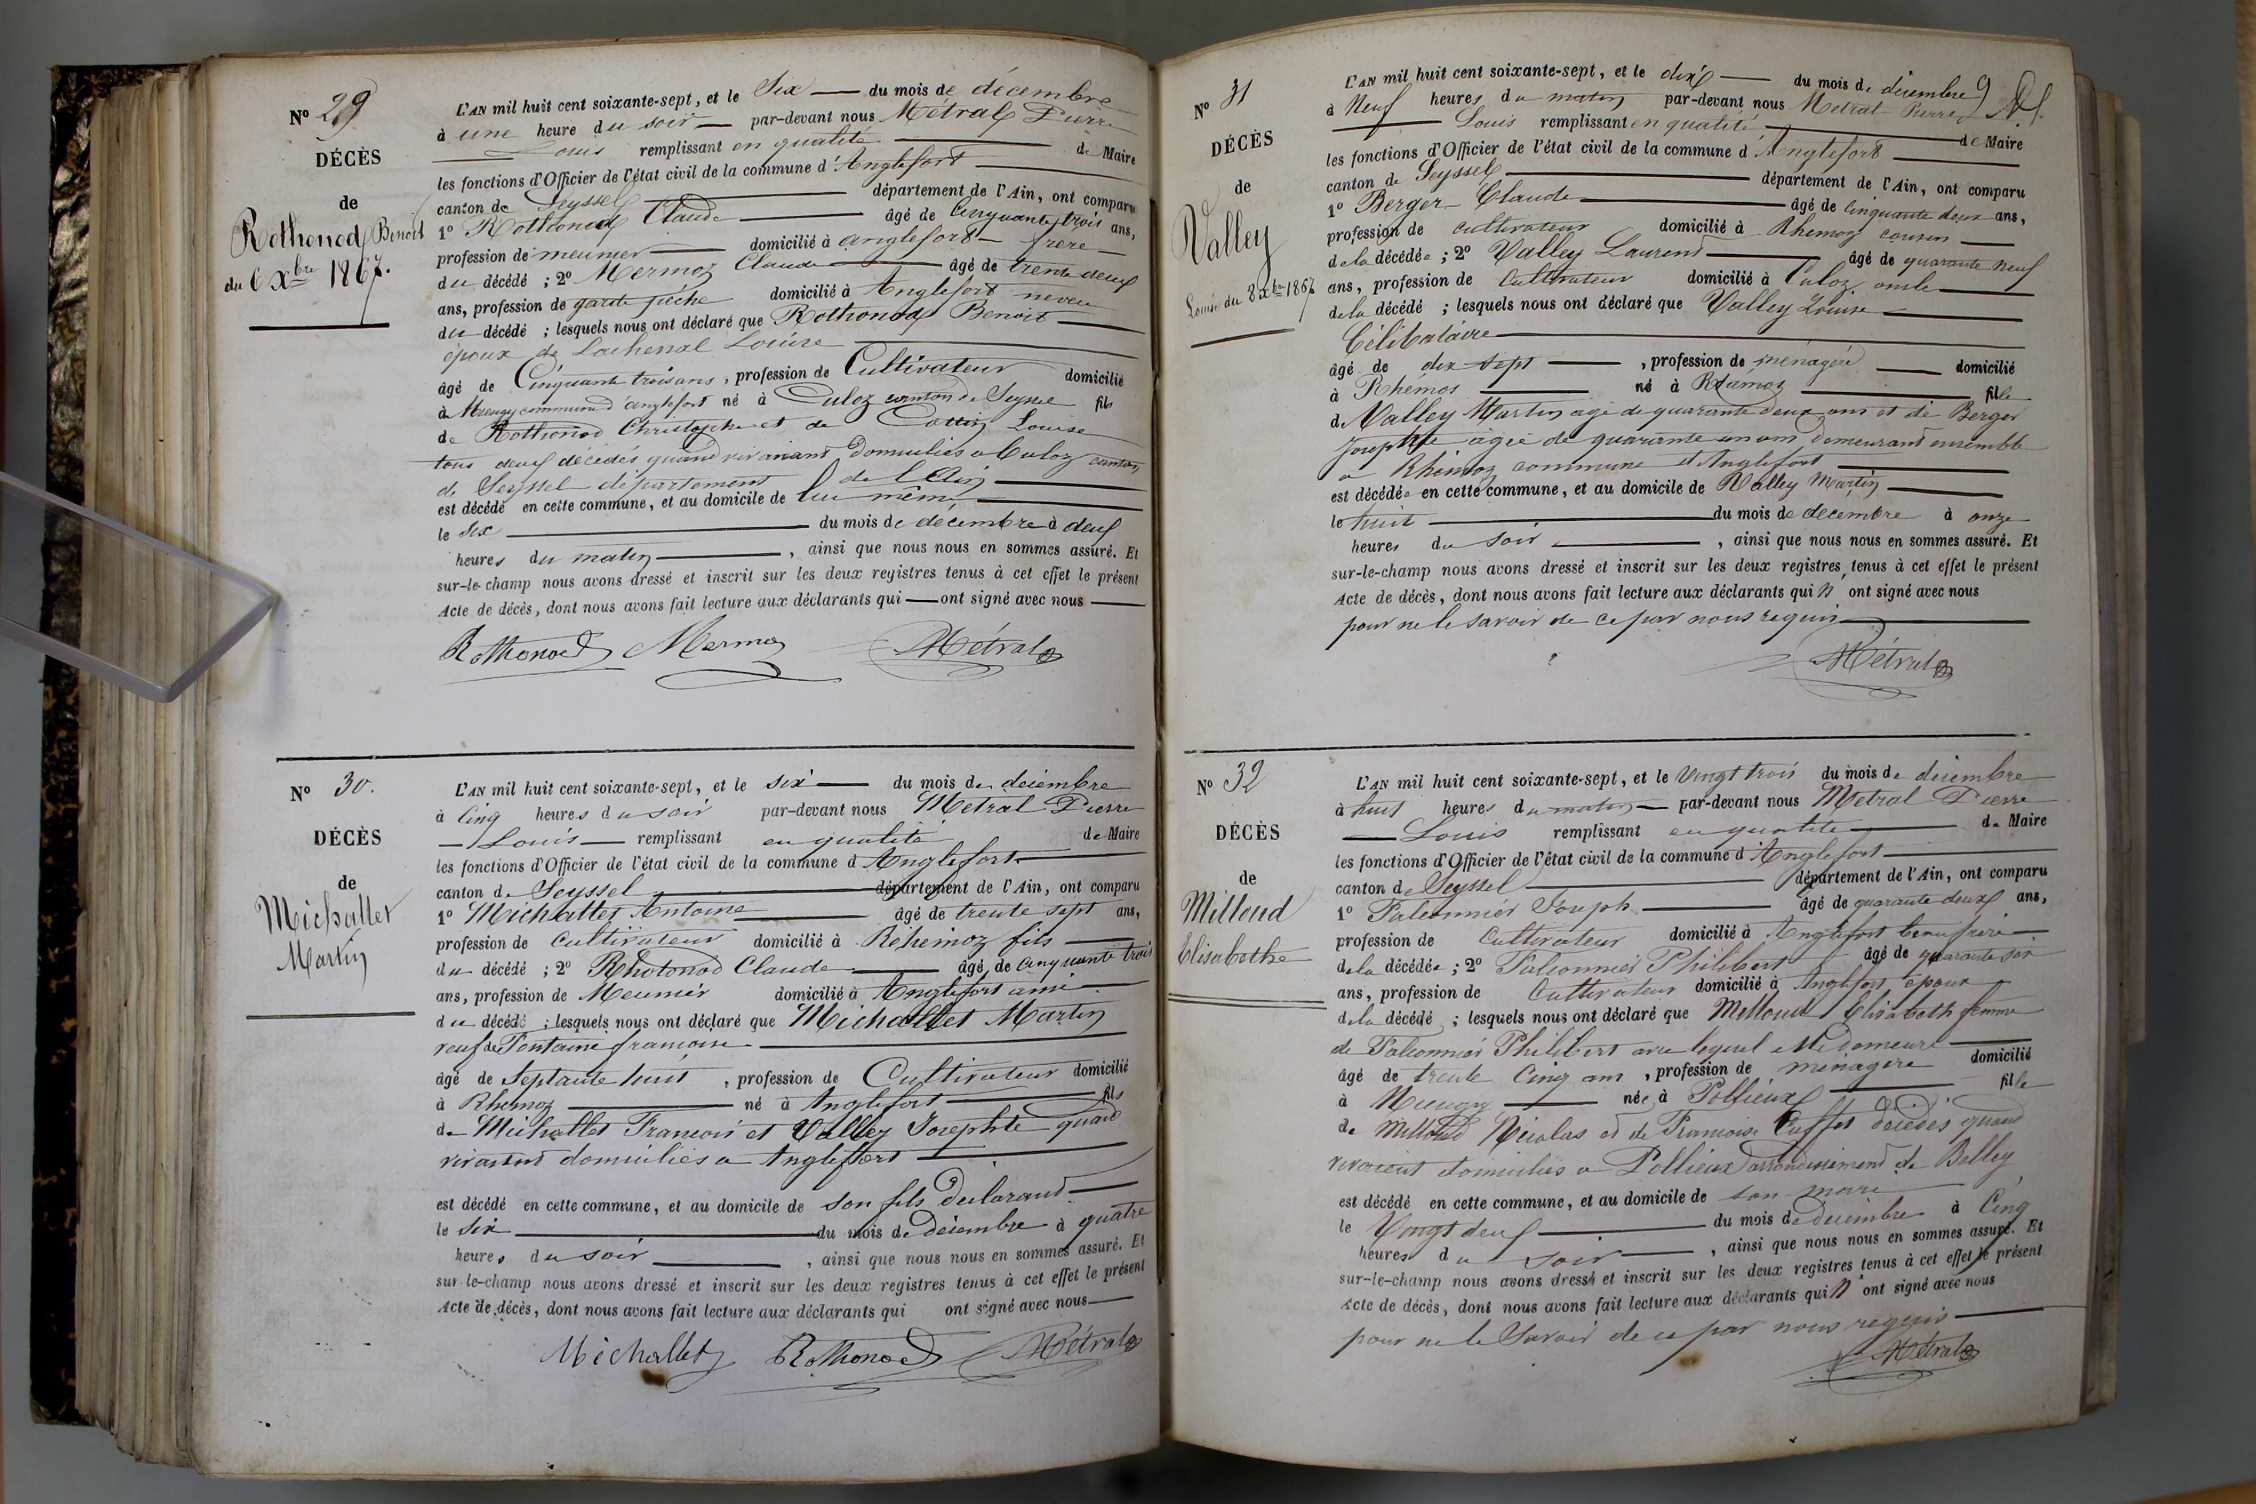 N° 29
DÉCÈS
de
Rothonod Benoit
du 6 Xbre 1867.
L'AN mil huit cent soixante-sept, et le Six du mois de décembre
à une heure du soir par-devant nous Métral Pierre
Louis remplissant en qualité de Maire
les fonctions d'Officier de l'état civil de la commune d'Anglefort
canton de Seyssel département de l'Ain, ont comparu
1° Rothonod Claude âgé de Cinquante trois ans,
profession de meunier domicilié à anglefort frère
du décédé ; 2° Mermoz Claude âgé de trente deux
ans, profession de garde pêche domicilié à Anglefort neveu
du décédé ; lesquels nous ont déclaré que Rothonod Benoit
époux de Lachenal Louise
âgé de Cinquante trois ans, profession de Cultivateur domicilié
à commune d'anglefort né à Culoz canton de Seyssel fils
de Rothonod Christophe et de Louise
tous deux décédés quand vivaient domiciliés à Culoz canton
de Seyssel département de l'Ain
est décédé en cette commune, et au domicile de lui même
le six du mois de décembre à deux
heures du matin, ainsi que nous nous en sommes assuré. Et
sur-le-champ nous avons dressé et inscrit sur les deux registres tenus à cet effet le présent
Acte de décès, dont nous avons fait lecture aux déclarants qui ont signé avec nous
Rothonod Mermoz Métral
N° 30.
DÉCÈS
de
Michallet
Martin
L'AN mil huit cent soixante-sept, et le six du mois de décembre
à Cinq heures du soir par-devant nous Métral Pierre
Louis remplissant en qualité de Maire
les fonctions d'Officier de l'état civil de la commune d Anglefort
canton de Seyssel département de l'Ain, ont comparu
1° Michallet Antoine âgé de trente sept ans,
profession de Cultivateur domicilié à Rhémoz fils
du décédé ; 2° Rhotonod Claude âgé de cinquante trois
ans, profession de Meunier domicilié à Anglefort ami
du décédé ; lesquels nous ont déclaré que Michallet Martin
veuf de Fontaine francoise
âgé de Septante huit, profession de Cultivateur domicilié
à Rhemoz né à Anglefort fils
de Michallet Francois et Valley Josephte quand
vivaient domiciliés a Anglefort
est décédé en cette commune, et au domicile de son fils déclarant
le six du mois de décembre à quatre
heures du soir, ainsi que nous nous en sommes assuré. Et
sur-le-champ nous avons dressé et inscrit sur les deux registres tenus à cet effet le présent
Acte de décès, dont nous avons fait lecture aux déclarants qui ont signé avec nous
Michallet Rothonod Métral
N° 31
DÉCÈS
de
Valley
Louise du 8 Xbre 1867
L'AN mil huit cent soixante-sept, et le dix du mois de décembre
à Neuf heures du matin par-devant nous Metral Pierre
Louis remplissant en qualité de Maire
les fonctions d'Officier de l'état civil de la commune d Anglefort
canton de Seyssel département de l'Ain, ont comparu
1° Berger Claude âgé de cinquante deux ans,
profession de cultivateur domicilié à Rhemoz cousin
de la décédée ; 2° Valley Laurent âgé de quarante neuf
ans, profession de Cultivateur domicilié à Culoz oncle
de la décédé ; lesquels nous ont déclaré que Valley Louise
Célibataire
âgé de dix sept, profession de ménagère domicilié
à Rhémos né à Rhemoz fille
de Valley Martin agé de quarante deux ans et de Berger
Josephte agée de quarante un ans demeurant ensemble
a Rhémoz commune d'Anglefort
est décédée en cette commune, et au domicile de Valley Martin
le huit du mois de décembre à onze
heures du soir, ainsi que nous nous en sommes assuré. Et
sur-le-champ nous avons dressé et inscrit sur les deux registres tenus à cet effet le présent
Acte de décès, dont nous avons fait lecture aux déclarants qui n'ont signé avec nous
pour ne le savoir de ce par nous requis
Métral
N° 32
DÉCÈS
de
Milloud
Elisabethe
L'AN mil huit cent soixante-sept, et le Vingt trois du mois de décembre
à huit heures du matin par-devant nous Metral Pierre
Louis remplissant en qualité de Maire
les fonctions d'Officier de l'état civil de la commune d'Anglefort
canton de Seyssel département de l'Ain, ont comparu
1° Falconnier Joseph âgé de quarante deux ans,
profession de Cultivateur domicilié à Anglefort beaufrère
de la décédée ; 2° Falconnier Philibert âgé de quarante six
ans, profession de Cultivateur domicilié à Anglefort époux
de la décédé ; lesquels nous ont déclaré que Milloud Elisabeth femme
de Falconnier Philibert avec lequel elle demeure
âgé de trente Cinq ans, profession de ménagère domicilié
à née à Pollieux fille
de Milloud Nicolas et de Francoise décédés quand
vivaient domiciliés a Pollieux arrondissement de Belley
est décédé en cette commune, et au domicile de son mari
le Vingt deux du mois de décembre à Cinq
heures du soir, ainsi que nous nous en sommes assuré. Et
sur-le-champ nous avons dressé et inscrit sur les deux registres tenus à cet effet le présent
Acte de décès, dont nous avons fait lecture aux déclarants qui n'ont signé avec nous
pour ne le Savoir de ce par nous requis
Métral